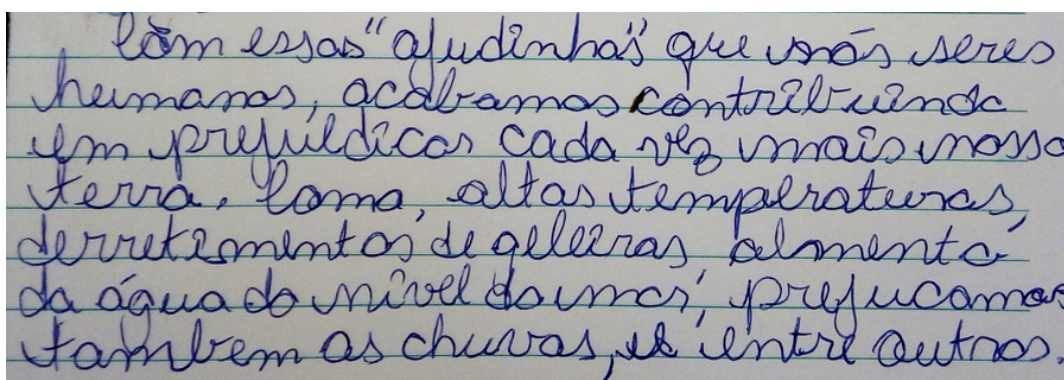 Com essas "ajudinhas" que nós seres
humanos, acabamos contribuindo
em prejuldicar cada vez mais nossa
terra. Como, altas temperaturas,
derretimentos de geleiras, almento
da água do nível do mar, prejucamos
tambem as chuvas, e entre outros.